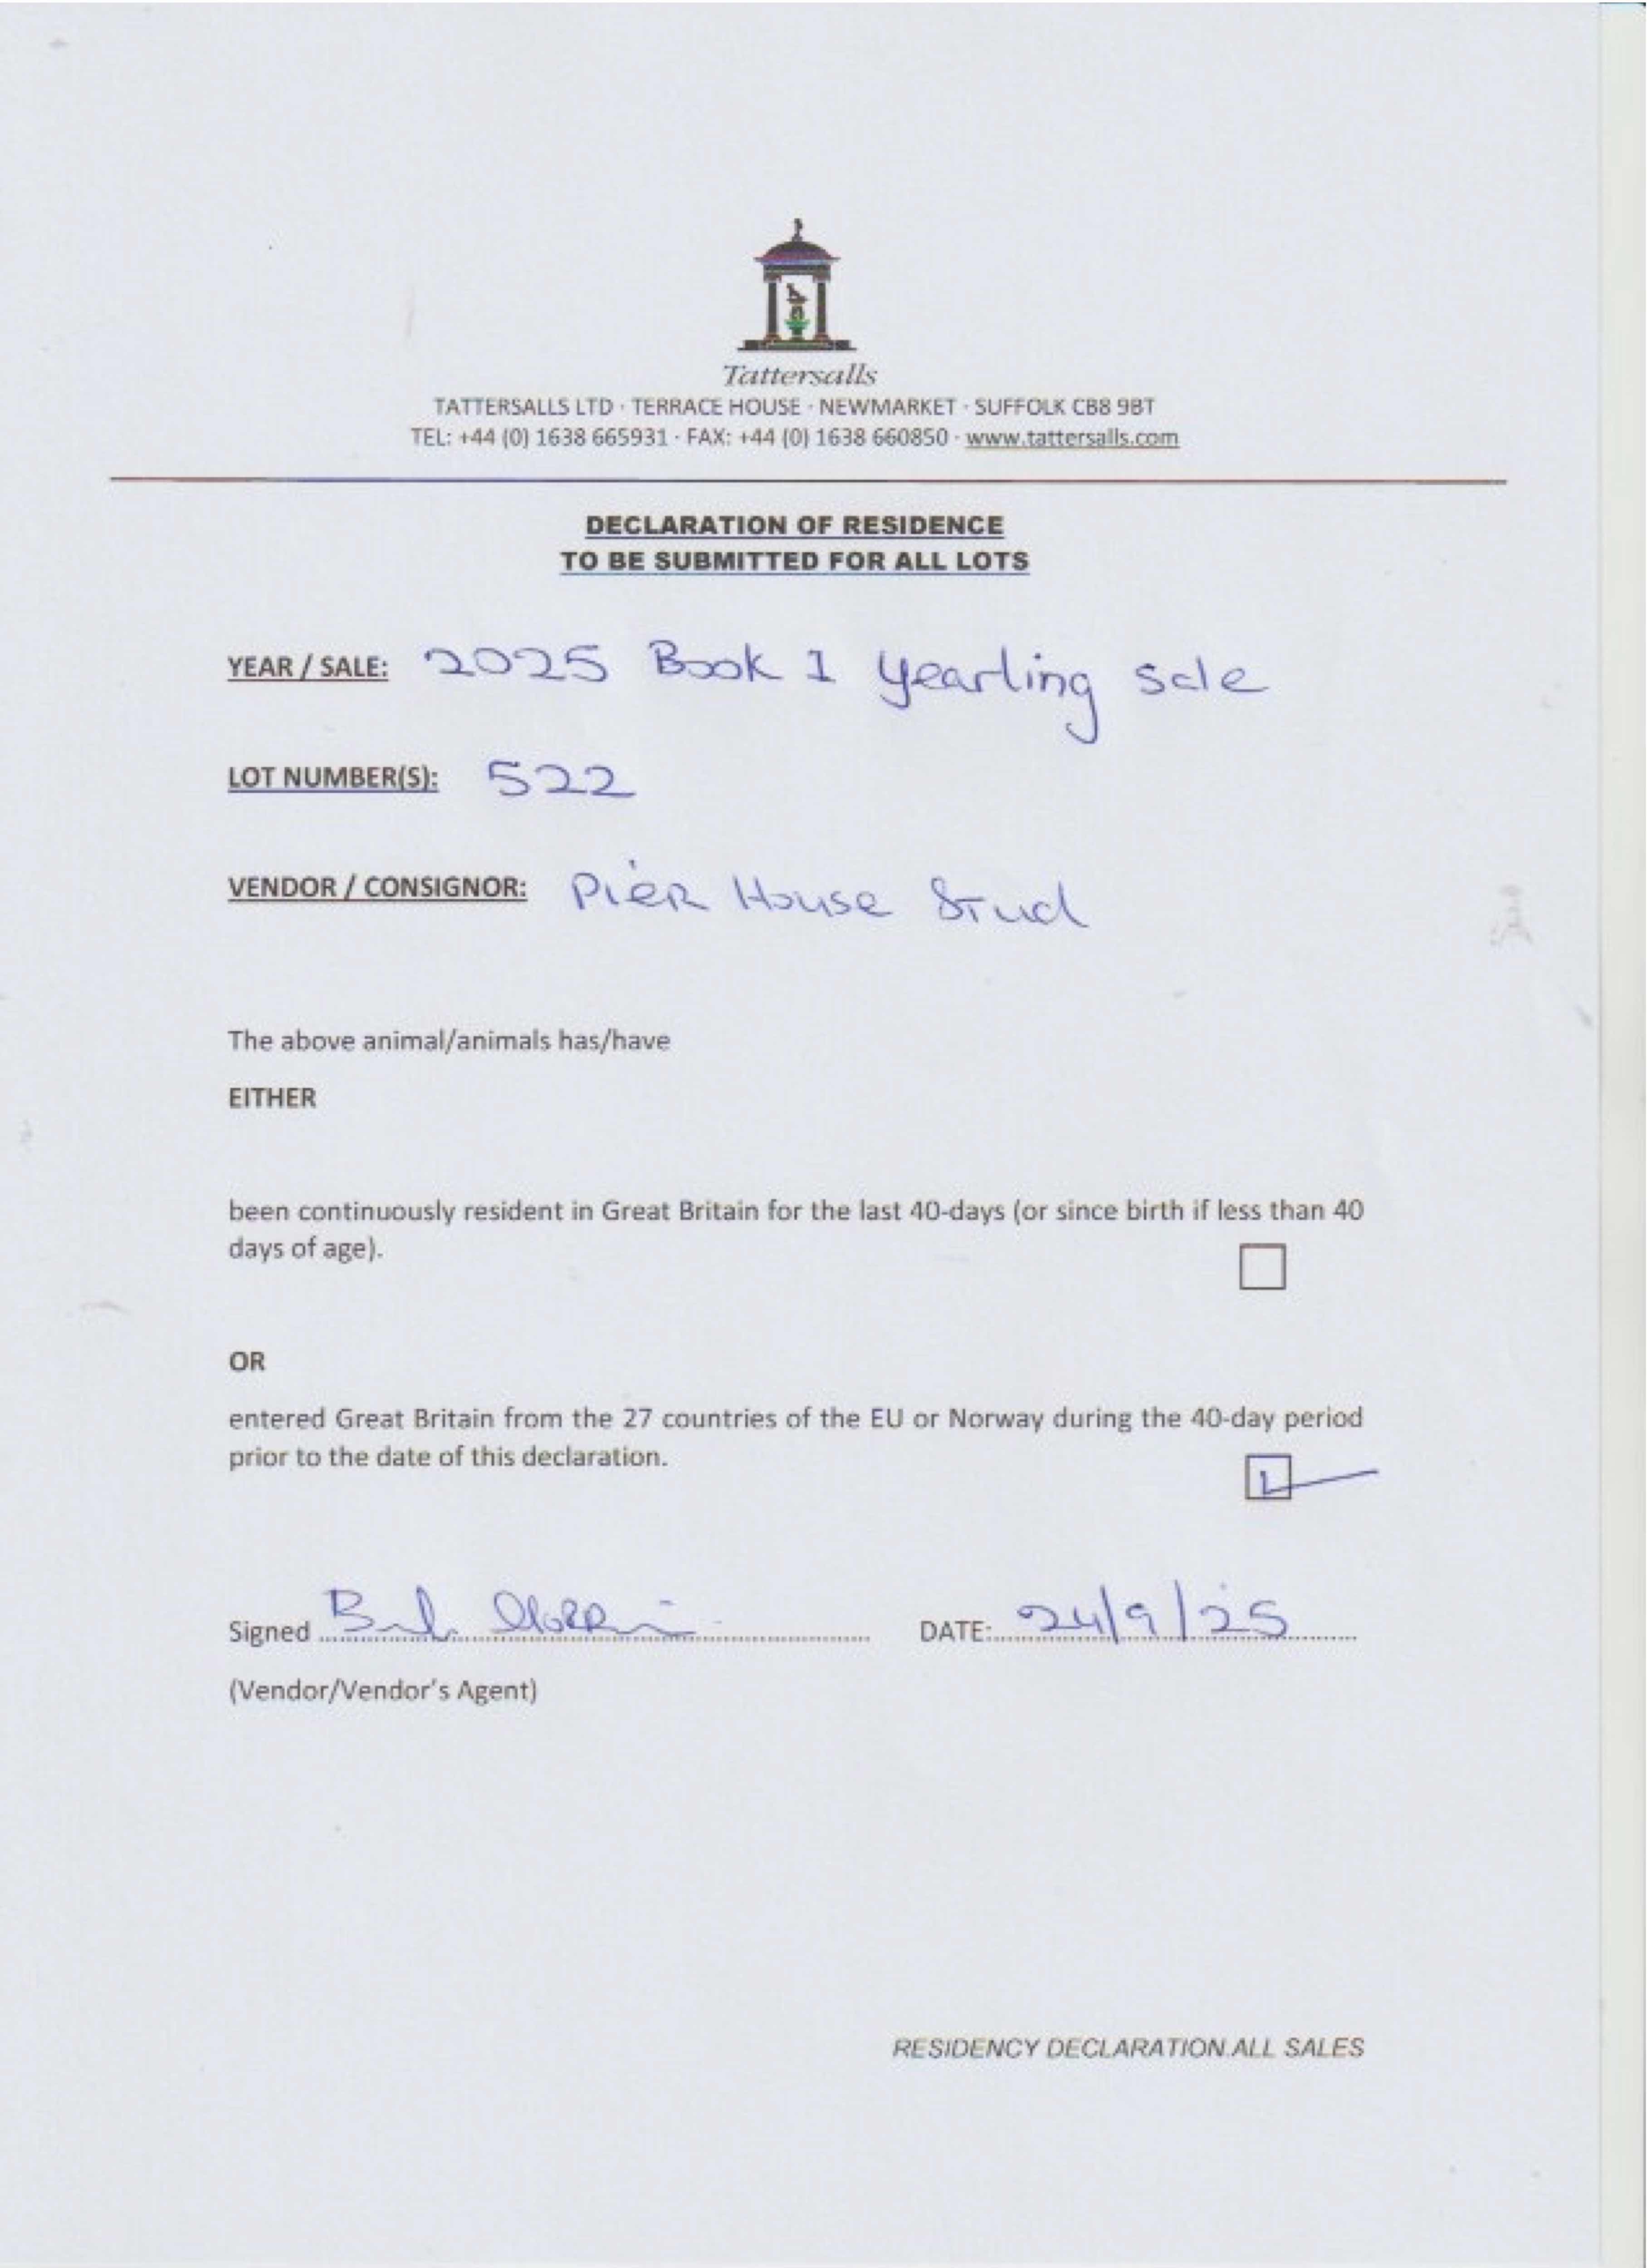 Tattersalls
TATTERSALLS LTD · TERRACE HOUSE · NEWMARKET · SUFFOLK CB8 9BT
TEL: +44 (0) 1638 665931 · FAX: +44 (0) 1638 660850 · www.tattersalls.com
DECLARATION OF RESIDENCE
TO BE SUBMITTED FOR ALL LOTS
YEAR / SALE: 2025 Book 1 Yearling Sale
LOT NUMBER(S): 522
VENDOR / CONSIGNOR: Pier House Stud
The above animal/animals has/have
EITHER
been continuously resident in Great Britain for the last 40-days (or since birth if less than 40
days of age).
OR
entered Great Britain from the 27 countries of the EU or Norway during the 40-day period
prior to the date of this declaration.
Signed DATE: 24/9/25
(Vendor/Vendor's Agent)
RESIDENCY DECLARATION.ALL SALES